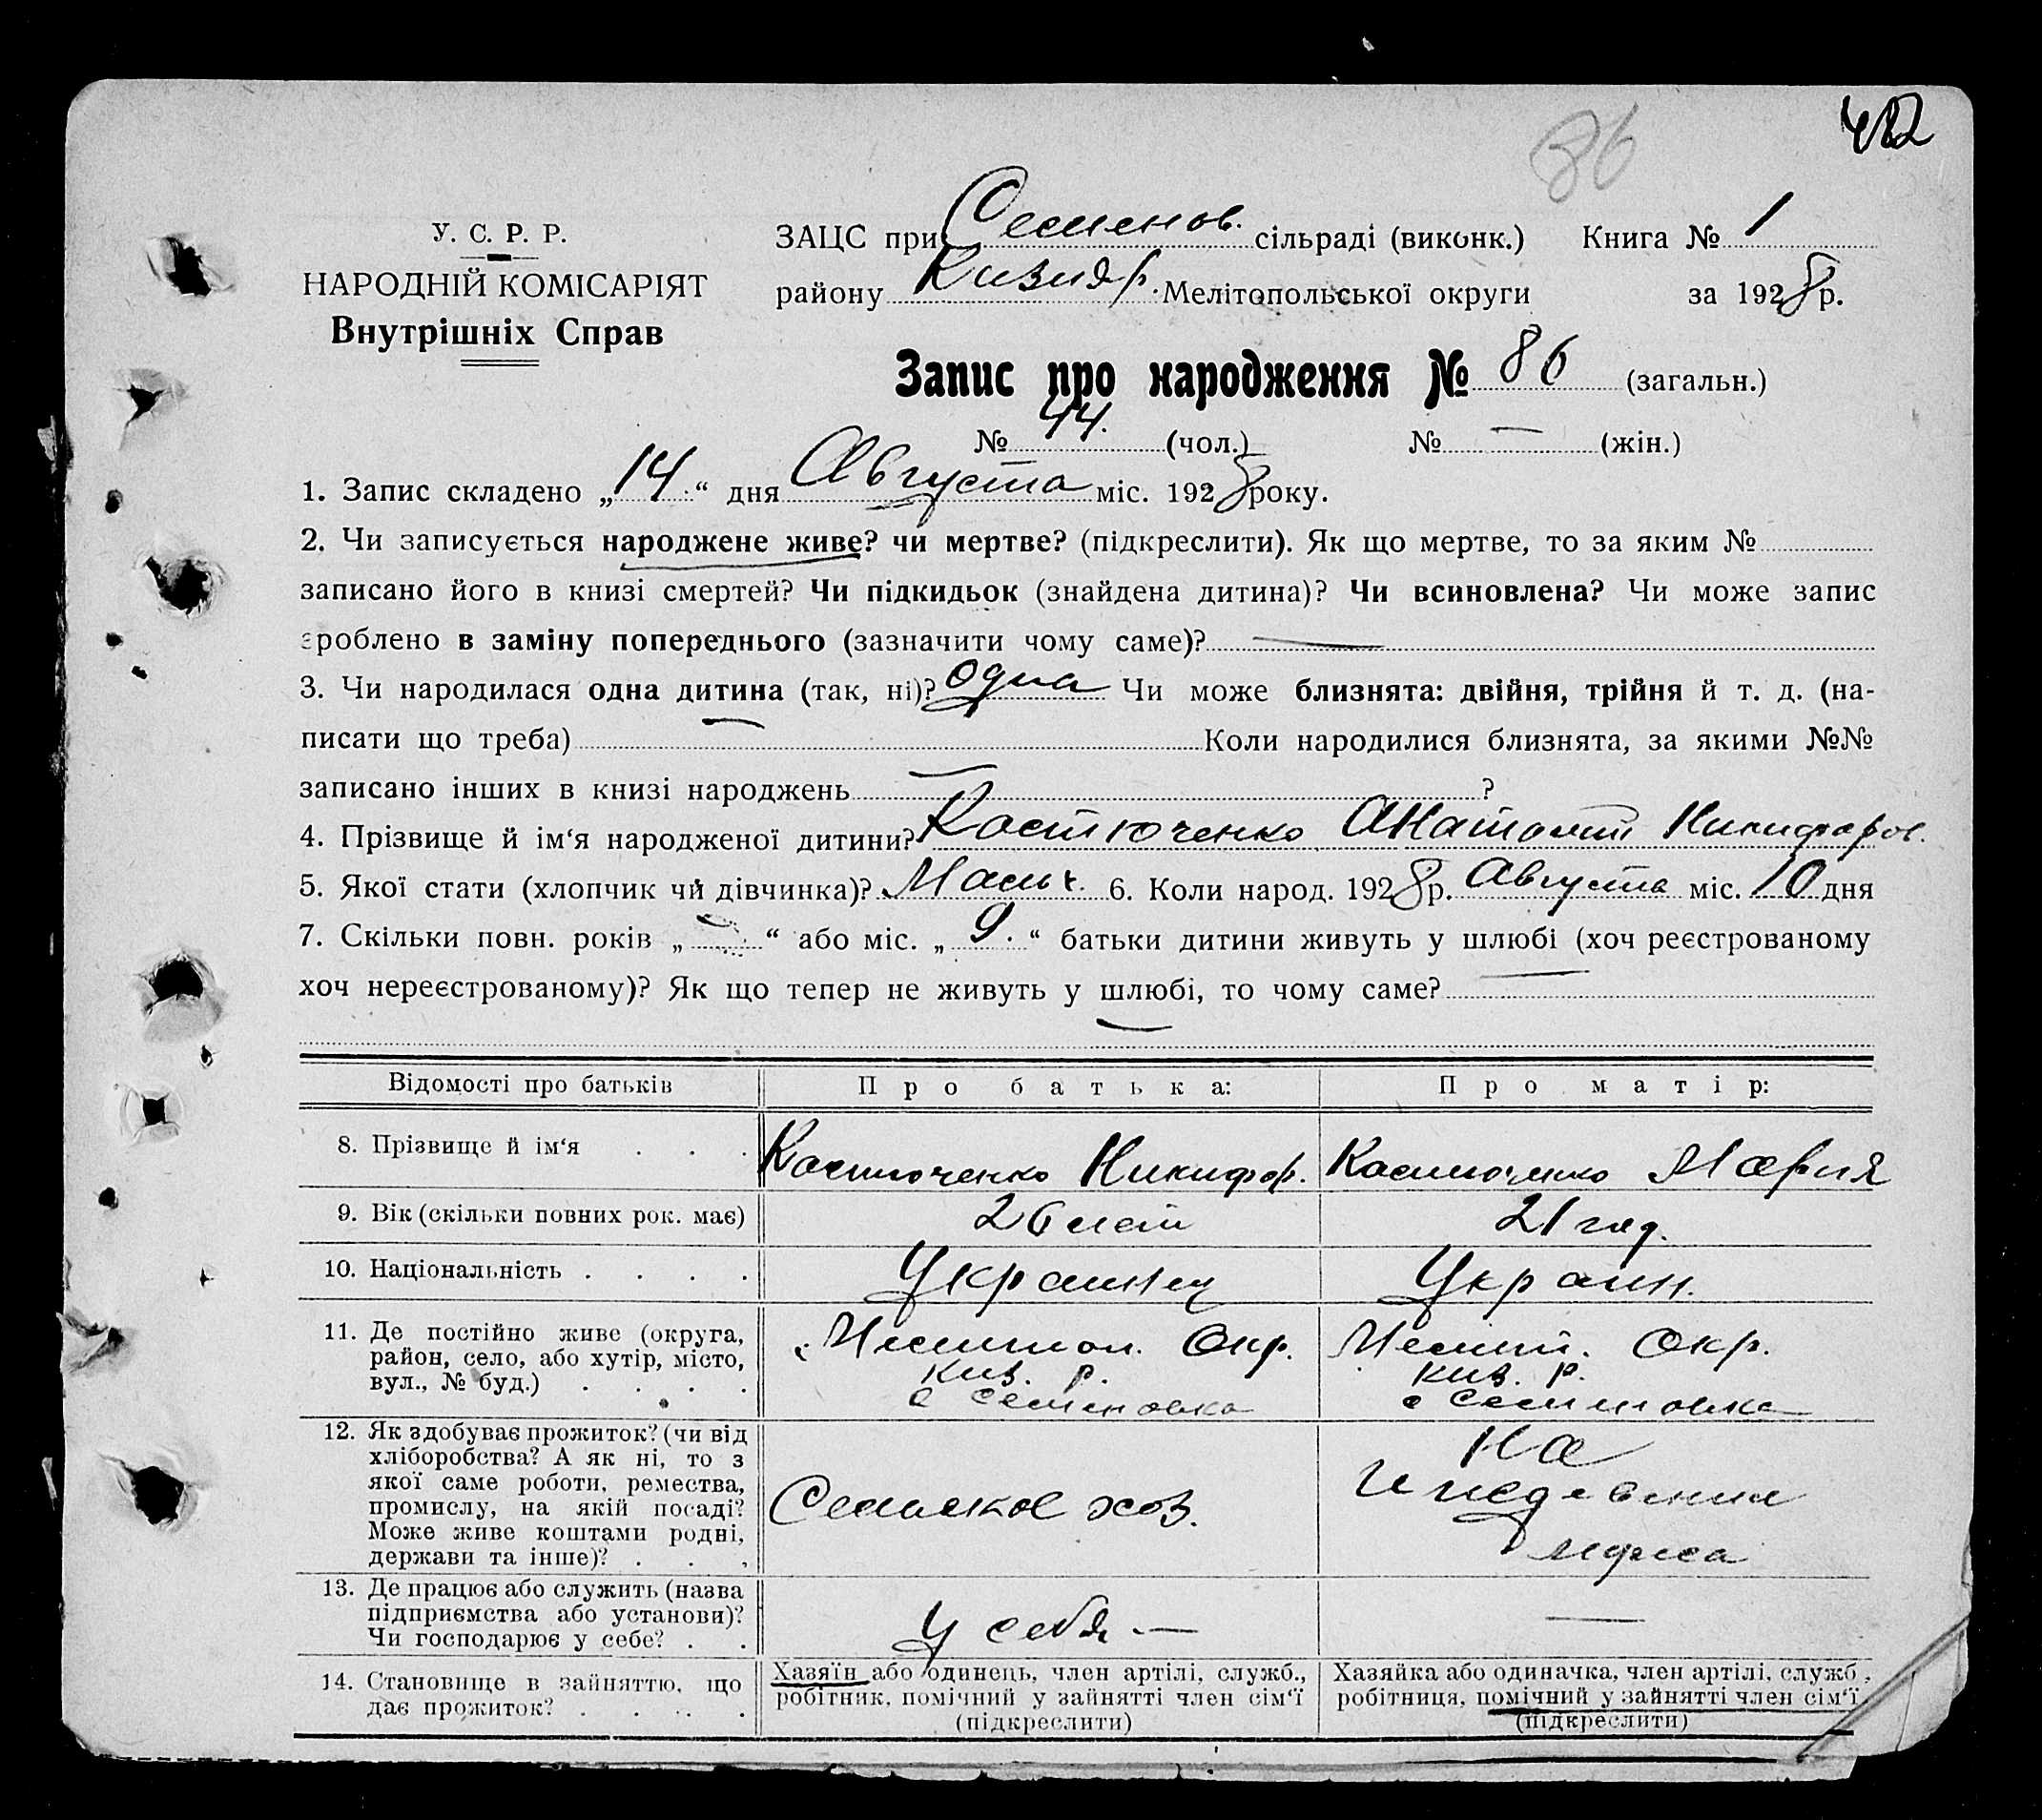 482
86
У. С. Р. Р.
НАРОДНІЙ КОМІСАРІЯТ
Внутрішніх Справ
ЗАЦС при Семенов. сільраді (виконк.) Книга № 1
району Кизияр. Мелітопольської округи за 1928 р.
Запис про народження № 86 (загальн.)
№ 44. (чол.) № — (жін.)
1. Запис складено „14“ дня Августа міс. 1928 року.
2. Чи записується народжене живе? чи мертве? (підкреслити). Як що мертве, то за яким №
записано його в книзі смертей? Чи підкидьок (знайдена дитина)? Чи всиновлена? Чи може запис
зроблено в заміну попереднього (зазначити чому саме)? —
3. Чи народилася одна дитина (так, ні)? одна Чи може близнята: двійня, трійня й т. д. (на-
писати що треба) — Коли народилися близнята, за якими №№
записано інших в книзі народжень — ?
4. Прізвище й ім‘я народженої дитини? Костюченко Анатолий Никифоров.
5. Якої стати (хлопчик чи дівчинка)? Мальч. 6. Коли народ. 1928 р. Августа міс. 10 дня
7. Скільки повн. років „—“ або міс. „9.“ батьки дитини живуть у шлюбі (хоч реєстрованому
хоч нереєстрованому)? Як що тепер не живуть у шлюбі, то чому саме? —
—
Відомості про батьків Про батька: Про матір:
8. Прізвище й ім‘я . . . Костюченко Никифор. Костюченко Мария
9. Вік (скільки повних рок. має) 26 лет 21 год.
10. Національність . . . . Украинец Украин.
11. Де постійно живе (округа,
район, село, або хутір, місто,
вул., № буд.) . . . .
Мелитоп. Окр.
Киз. р.
с Семеновка
Мелит. Окр.
Киз. р.
с Семеновка
12. Як здобуває прожиток? (чи від
хліборобства? А як ні, то з
якої саме роботи, ремества,
промислу, на якій посаді?
Може живе коштами родні,
держави та інше)? . . .
Сельское хоз.
На
иждевении
мужа
13. Де працює або служить (назва
підприємства або установи)?
Чи господарює у себе? . .
у себя —
—
14. Становище в зайняттю, що
дає прожиток? . . . .
Хазяїн або одинець, член артілі, служб.,
робітник, помічний у зайнятті член сім‘ї
(підкреслити)
Хазяйка або одиначка, член артілі, служб.,
робітниця, помічний у зайнятті член сім‘ї
(підкреслити)